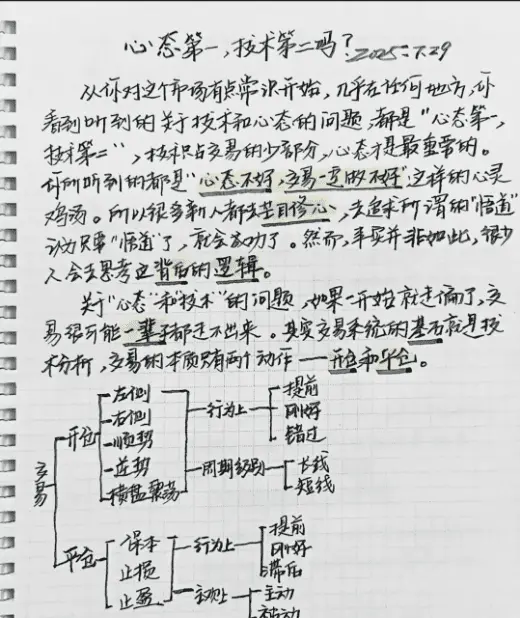 心态第一,技术第二吗? 2025.7.29
从你对这个市场有点常识开始,几乎在任何地方,你
看到听到的关于技术和心态的问题,都是“心态第一,
技术第二”,技术只占交易的少部分,心态才是最重要的。
你所听到的都是“心态不好,交易一定做不好”这样的心灵
鸡汤。所以很多新人都去盲目修心,去追求所谓的“悟道”
认为只要“悟道”了,就会成功了。然而,事实并非如此,很少
人会去思考这背后的逻辑。
关于“心态”和“技术”的问题,如果一开始就走偏了,交
易很可能一辈子都走不出来。其实交易系统的基石就是技
术分析,交易的本质只有两个动作——开仓和平仓。
交易
开仓
左侧
右侧
顺势
逆势
横盘震荡
行为上
提前
刚好
错过
周期级别
长线
短线
平仓
保本
止损
止盈
行为上
提前
刚好
滞后
主观上
主动
被动